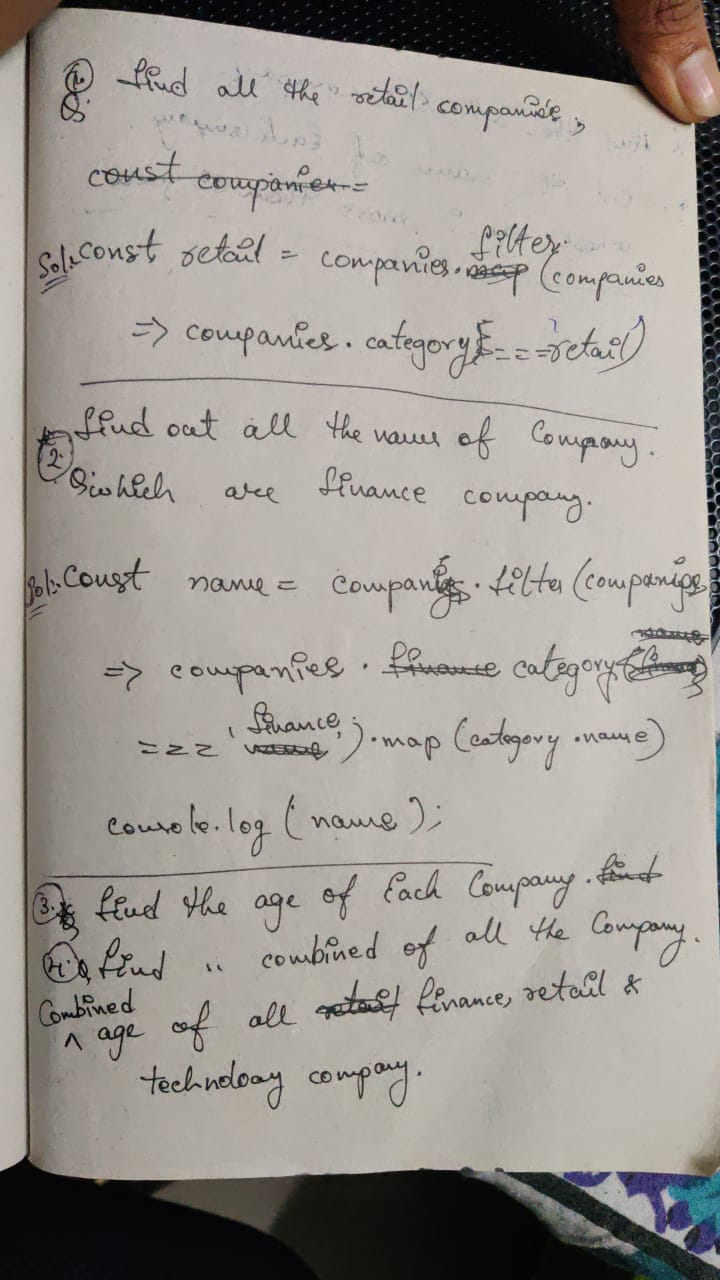 ① Q. find all the retail companies,
const companies =
Sol:- const retail = companies.map filter (companies
=> companies. category === 'retail')
② find out all the names of Company.
Q which are finance company.
Sol:- Const name = companies. filter (companies
=> companies. finance category
=== 'finance').map (category.name)
console.log (name);
③. find the age of Each Company. find
④. Q find " combined of all the Company.
Combined
^ age of all retail finance, retail &
technoloay company.